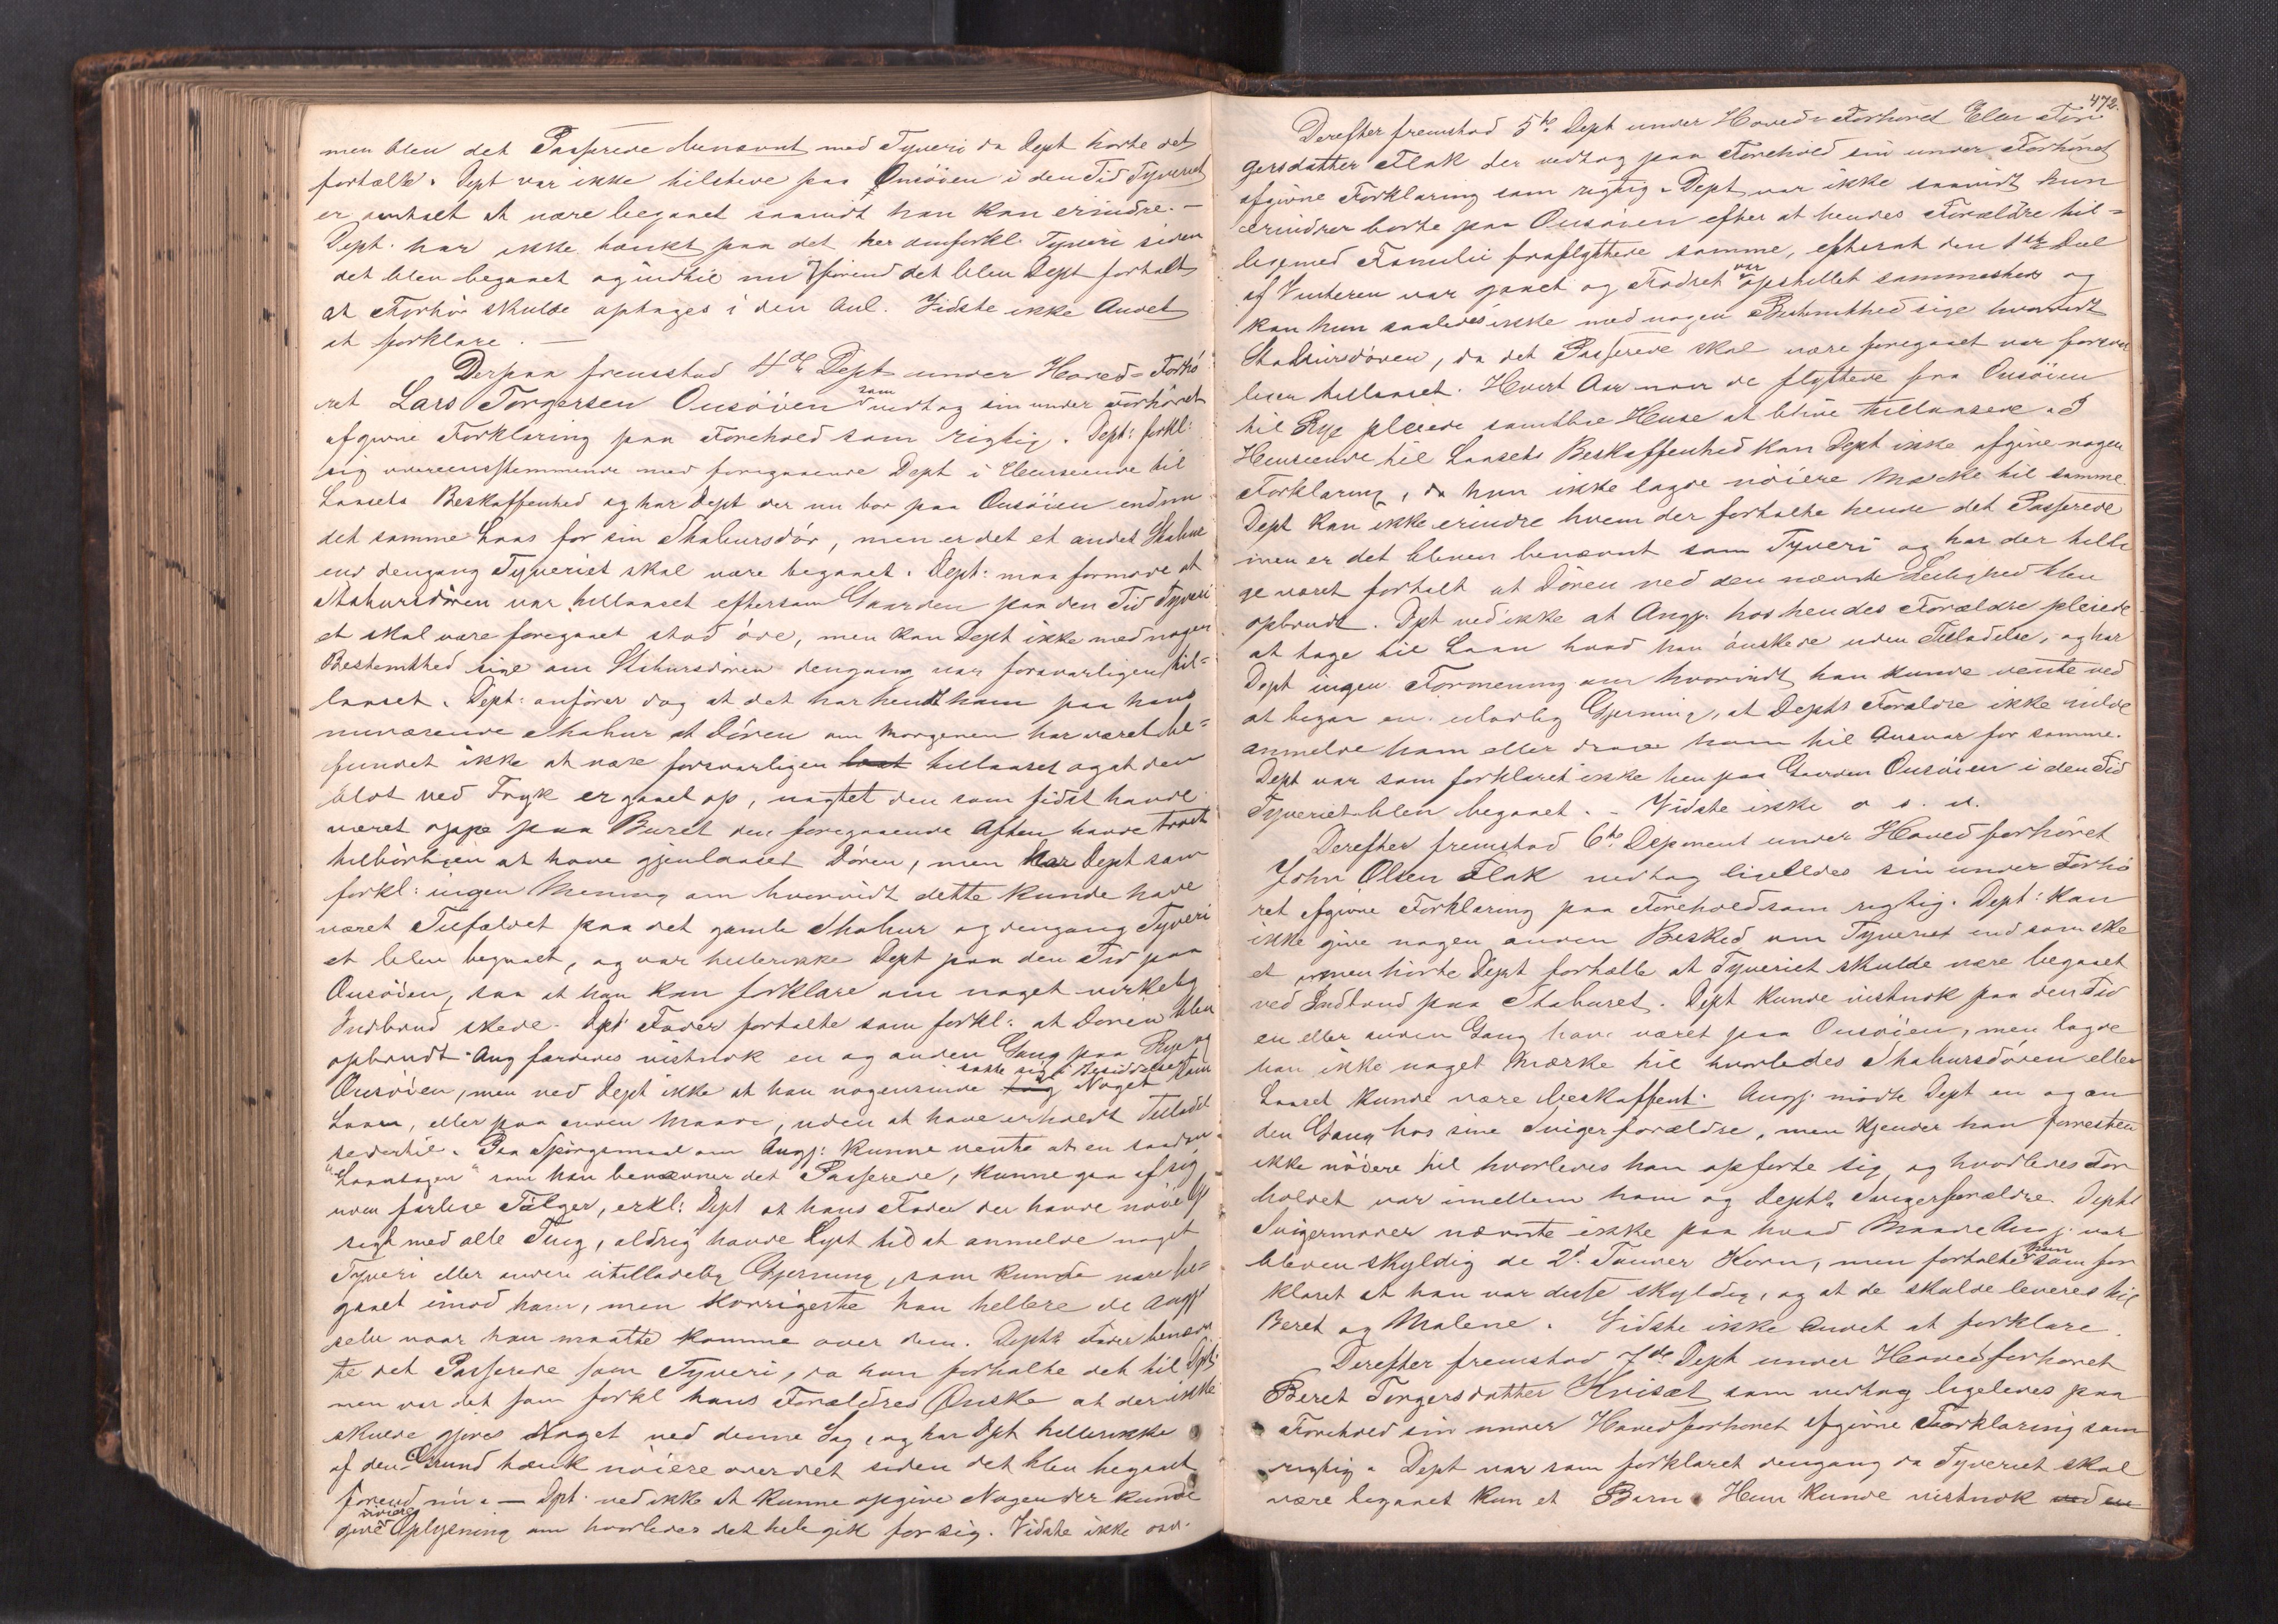 men blev det Passerede benævnt med Tyveri da Dept hørte det
fortælle. Dept var ikke tilstede paa Onsöien i den Tid Tyveriet
er antaget at være begaaet saavidt han kan erindre. —
Dept. har ikke tænkt paa det her omforkl. Tyveri siden
det blev begaaet og indtil nu förend det blev Dept fortalt
at Forhör skulde optages i den Anl. Vidste ikke Andet
at forklare. —
Derpaa fremstod 4de Dept under Hoved-Forhö
ret Lars Torgersen Onsöien som vedtog sin under Forhöret
afgivne Forklaring paa Forehold som rigtig. Dept: forkl:
sig overensstemmende med foregaaende Dept i Henseende til
Laasets Beskaffenhed og har Dept der nu bor paa Onsöien endnu
det samme Laas for sin Stabursdör, men er det et andet Stabur
end dengang Tyveriet skal være begaaet. Dept: maa formode at
Stabursdören var tillaaset eftersom Gaarden paa den Tid Tyveri
et skal være foregaaet stod öde, men kan Dept ikke med nogen
Bestemthed sige om Stabursdören dengang var forsvarligen til=
laaset. Dept: anförer dog at det har hendt ham paa hans
nuværende Stabur at Dören om Morgenen har været be=
fundet ikke at være forsvarligen tillaaset og at den
blot ved Tryk er gaaet op, uagtet den som sidst havde
været oppe paa Buret den foregaaende Aften havde troet
tilbörligen at have gjenlaaset Dören, men har Dept som
forkl: ingen Mening om hvorvidt dette kunde have
været Tilfældet paa det gamle Stabur og dengang Tyveri
et blev begaaet, og var hellerikke Dept paa den Tid paa
Onsöien, saa at han kan forklare om noget virkelig
Indbrud skede. Dpts Fader fortalte som forkl: at Dören blev
opbrudt. Ang færdedes vistnok en og anden Gang paa Rye og
Onsöien, men ved Dept ikke at han nogensinde satte sig i Besiddelse af Noget som
Laan, eller paa anden Maade, uden at have erholdt Tilladel
se dertil. Paa Spörgsmaal om Angj: kunne vente at en saadan
"Laantagen" som han benævner det Passerede, kunne gaa af sig
uden farlige Fölger, erkl: Dept at hans Fader der havde nöiet
sig med alle Ting, aldrig havde Lyst til at anmelde noget
Tyveri eller anden utilladelig Gjerning, som kunde være be=
gaaet imod ham, men korrigerte han hellere de Angj
selv naar han maatte komme over dem. Depts Fader benævn
te det Passerede som Tyveri, da han fortalte det til Dpt:
men var det som forkl hans Forældres Önske at der ikke
skulde gjöres Noget ved denne Sag, og har Dpt hellerikke
af den Grund tænk nöiere over det siden det blev begaaet
forend nu. — Dpt. ved ikke at kunne opgive Nogen der kunde
give nöiere Oplysning om hvorledes det hele gik for sig. Vidste ikke osv.
472.
Derefter fremstod 5te Dept under Hoved-Forhöret Elen Tor
gersdatter Flak der vedtog paa Forehold sin under Forhöret
afgivne Forklaring som rigtig. Dept var ikke saavidt hun
erindrer borte paa Onsöien efter at hendes Forældre til=
ligemed Familie fraflyttede samme, efterat den 1ste Deel
af Vinteren var gaaet og Fodret var opstillet sammesteds og
kan hun saaledes ikke med nogen Bestemthed sige hvorvidt
Stabursdören, da det Passerede skal være foregaaet var forsvar
ligen tillaaset. Hvert Aar naar de flyttede fra Onsöien
til Rye pleiede samtlige Huse at blive tillaasede. I
Henseende til Laasets Beskaffenhed kan Dept ikke afgive nogen
Forklaring, da hun ikke lagde nöiere Mærke til samme.
Dept kan ikke erindre hvem der fortalte hende det Passerede
men er det bleven benævnt som Tyveri og har der tilli
ge været fortalt at Dören ved den nævnte Leilighed blev
opbrudt. Dpt ved ikke at Angj. hos hendes Forældre pleiede
at tage til Laan hvad han önskede uden Tilladelse, og har
Dept ingen Formening om hvorvidt han kunde vente ved
at begaa en ulovlig Gjerning, at Depts Forældre ikke vilde
anmelde ham eller drage ham til Ansvar for samme.
Dept var som forklaret ikke hen paa Gaarden Onsöien i den Tid
Tyveriet blev begaaet. — Vidste ikke o. s. v.
Derefter fremstod 6te Deponent under Hovedforhöret
John Olsen Flak vedtog ligeledes sin under Forhö
ret afgivne Forklaring paa Forehold som rigtig. Dept: kan
ikke give nogen anden Besked om Tyveriet end som ske
et men hörte Dept fortælle at Tyveriet skulde være begaaet
ved Indbrud paa Staburet. Dept kunde vistnok paa den Tid
en eller anden Gang have været paa Onsöien, men lagde
han ikke noget Mærke til hvorledes Stabursdören eller
Laaset kunde være beskaffent. Angj. mödte Dept en og an
den Gang hos sine Svigerforældre, men kjender han forresten
ikke nöiere til hvorledes han opförte sig og hvorledes For
holdet var imellem ham og Depts Svigerforældre. Depts
Svigermoder nævnte ikke paa hvad Maade Angj. var
bleven skyldig de 2de Tønder Korn, men fortalte hun som for
klaret at han var disse skyldig, og at de skulde leveres til
Beret og Malene. Vidste ikke Andet at forklare.
Derefter fremstod 7de Dept under Hovedforhöret
Beret Torgersdatter Kvisæt som vedtog ligeledes paa
Forehold sin under Hovedforhöret afgivne Forklaring som
rigtig. Dept var som forklaret dengang da Tyveriet skal
være begaaet kun et Barn. Hun kunde vistnok ved en